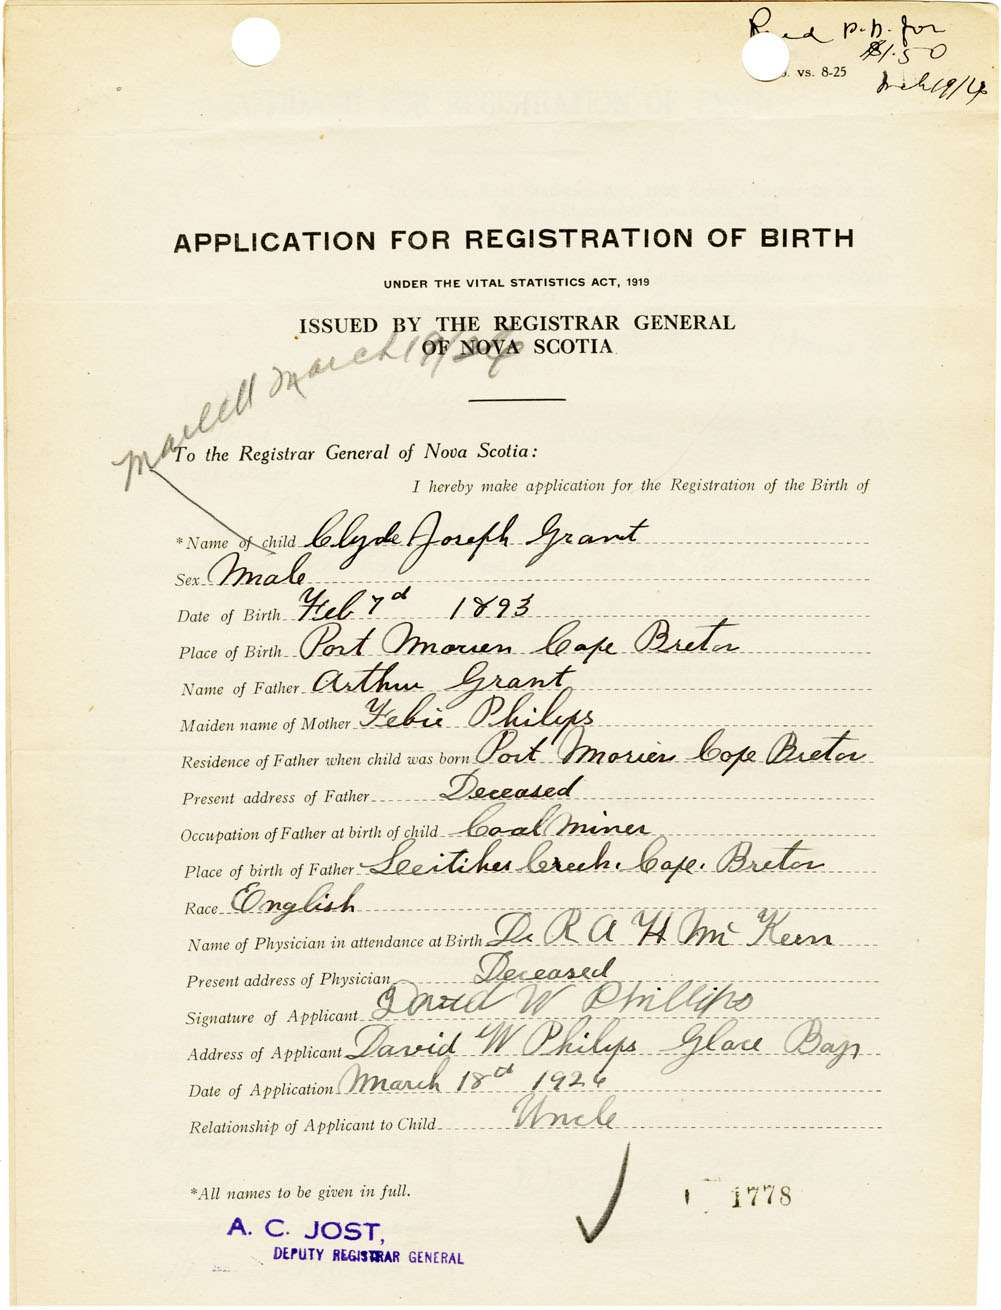 Rec'd P.N. for
$1.50
. vs. 8-25
Mch 19/26
APPLICATION FOR REGISTRATION OF BIRTH
UNDER THE VITAL STATISTICS ACT, 1919
ISSUED BY THE REGISTRAR GENERAL
OF NOVA SCOTIA
March 19/26
To the Registrar General of Nova Scotia:
I hereby make application for the Registration of the Birth of
*Name of child Clyde Joseph Grant
Sex Male
Date of Birth Feb 7d 1893
Place of Birth Port Morien Cape Breton
Name of Father Arthur Grant
Maiden name of Mother Febie Philips
Residence of Father when child was born Port Morien Cape Breton
Present address of Father Deceased
Occupation of Father at birth of child Coal Miner
Place of birth of Father Leitches Creek. Cape. Breton
Race English
Name of Physician in attendance at Birth Dr R A H Mc Keen
Present address of Physician Deceased
Signature of Applicant David W Phillips
Address of Applicant David W Philips Glace Bay
Date of Application March 18d 1926
Relationship of Applicant to Child Uncle
*All names to be given in full.
1778
A. C. JOST,
DEPUTY REGISTRAR GENERAL